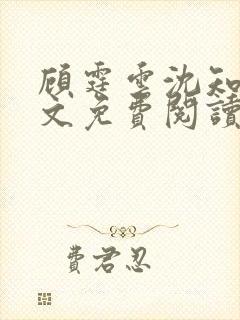 顾霆雲沈知
文免費閱讀
費君忍